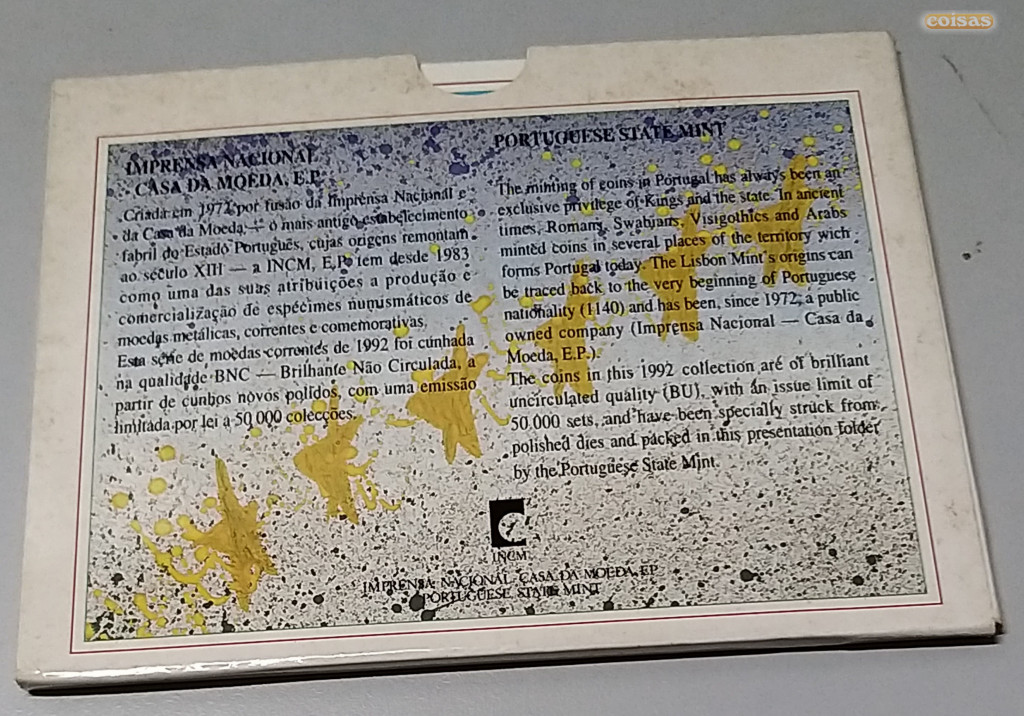 coisas
IMPRENSA NACIONAL
CASA DA MOEDA, E.P.
Criada em 1972 por fusão da Imprensa Nacional e
da Casa da Moeda, — o mais antigo estabelecimento
fabril do Estado Português, cujas origens remontam
ao século XIII — a INCM, E.P. tem desde 1983
como uma das suas atribuições a produção e
comercialização de espécimes numismáticos de
moedas metálicas, correntes e comemorativas.
Esta série de moedas correntes de 1992 foi cunhada
na qualidade BNC — Brilhante Não Circulada, a
partir de cunhos novos polidos, com uma emissão
limitada por lei a 50 000 colecções.
PORTUGUESE STATE MINT
The minting of coins in Portugal has always been an
exclusive privilege of Kings and the state. In ancient
times, Romans, Swabians, Visigothics and Arabs
minted coins in several places of the territory wich
forms Portugal today. The Lisbon Mint's origins can
be traced back to the very beginning of Portuguese
nationality (1140) and has been, since 1972, a public
owned company (Imprensa Nacional — Casa da
Moeda, E.P.).
The coins in this 1992 collection are of brilliant
uncirculated quality (BU), with an issue limit of
50.000 sets, and have been specially struck from
polished dies and packed in this presentation folder
by the Portuguese State Mint.
INCM
IMPRENSA NACIONAL CASA DA MOEDA, E.P.
PORTUGUESE STATE MINT